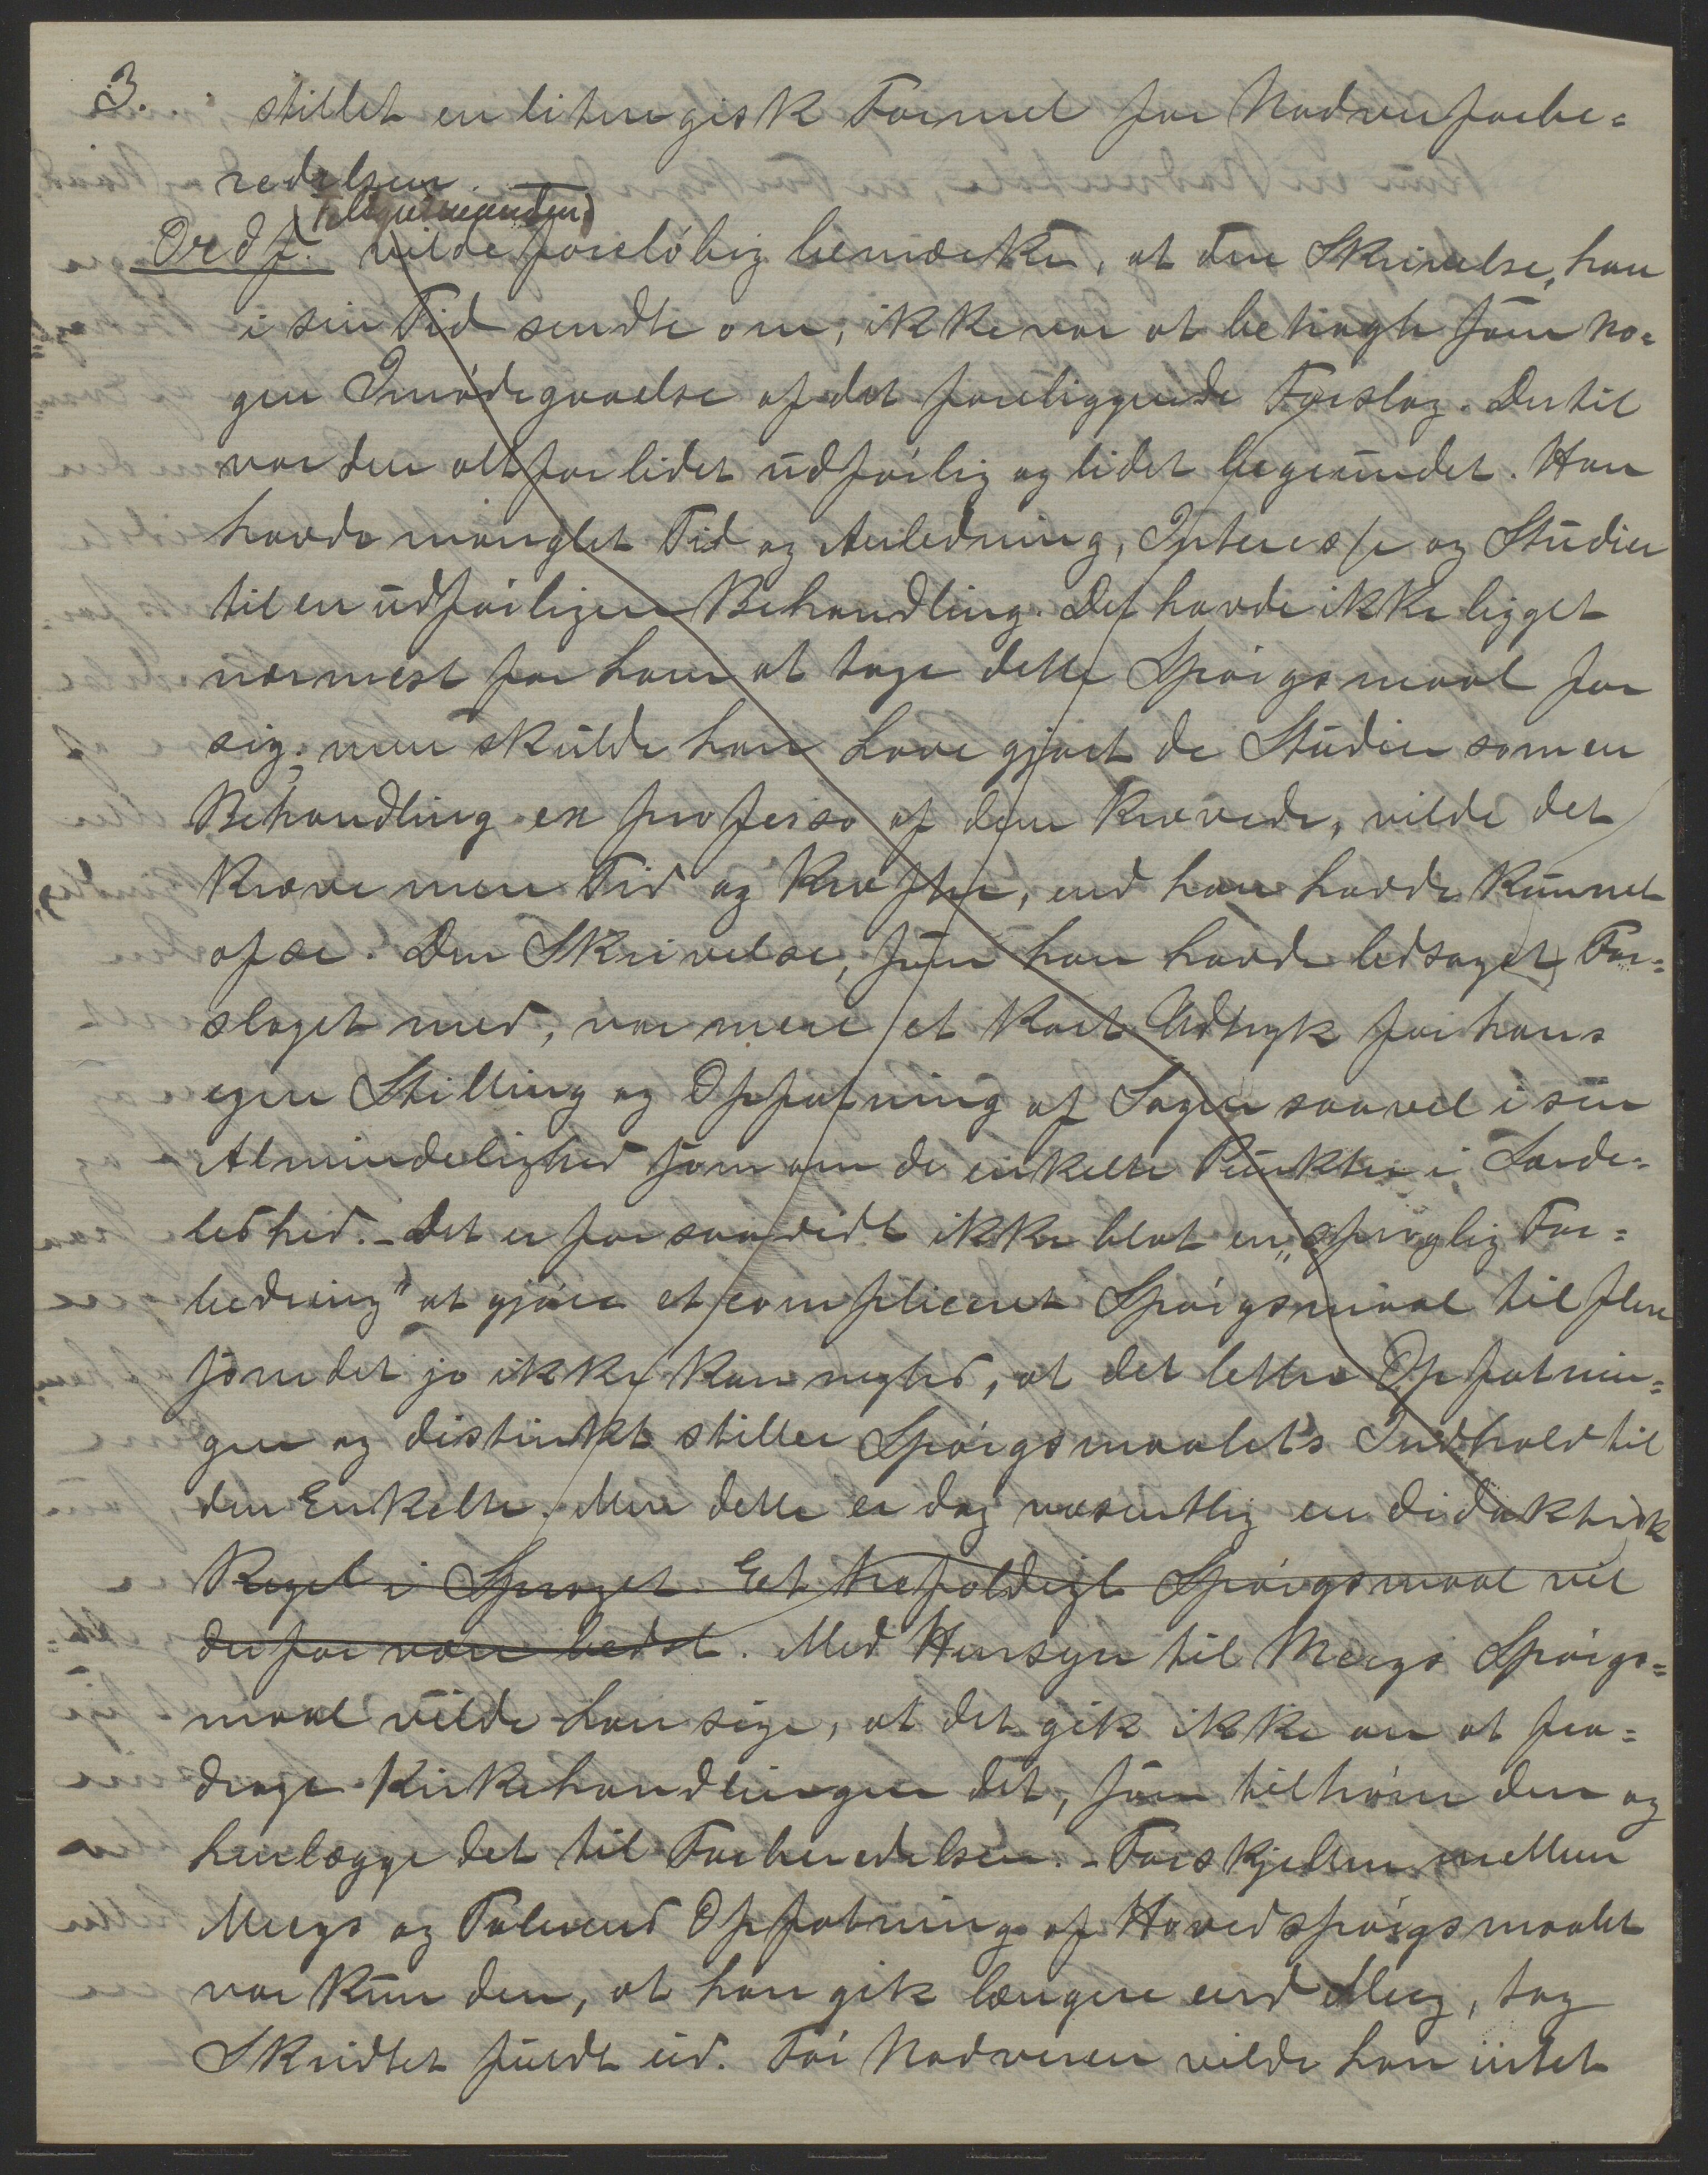 3. stillet en liturgisk Formel for Nadverforbe=
redelsen.
Ordf. vilde foreløbig bemærke, at den Skrivelse, han
i sin Tid sendte om, ikke var at betragte som no=
gen Imødegaaelse af det foreliggende Forslag. Dertil
var den alt for lidet udførlig og lidet begrundet. Han
havde manglet Tid og Anledning, Interesse og Studier
til en udførligere Behandling. Det havde ikke ligget
nærmest for ham at tage dette Spørgsmaal for
sig; men skulde han have gjort de Studier som en
Behandling ex professo af dem krævede, vilde det
kræve mere Tid og Kræfter, end han havde kunnet
afse. Den Skrivelse, som han havde ledsaget For=
slaget med, var mere et kort Udtryk for hans
egen Stilling og Opfatning af Sagen saavel i sin
Almindelighed som om de enkelte Punkter i Særde=
leshed. – Det er forsaavidt ikke blot en „sproglig For=
bedring" at gjøre et compliceret Spørgsmaal til flere
som det jo ikke kan negtes, at det letter Opfatnin=
gen og distinkt stiller Spørgsmaalets Indhold til
den Enkelte. Men dette er dog væsentlig en didaktisk
Regel i Sproget. Et trefoldigt Spørgsmaal vil
derfor være bedst. Med Hensyn til Meegs Spørgs=
maal vilde han sige, at det gik ikke an at fra=
drage Kirkehandlingen det, som tilhører den og
henlægge det til Forberedelsen. – Forskjellen mellem
Meegs og Talerens Opfatning af Hovedspørgsmaalet
var kun den, at han gik længere end Meeg, tog
Skridtet fuldt ud. Før Nadveren vilde han intet